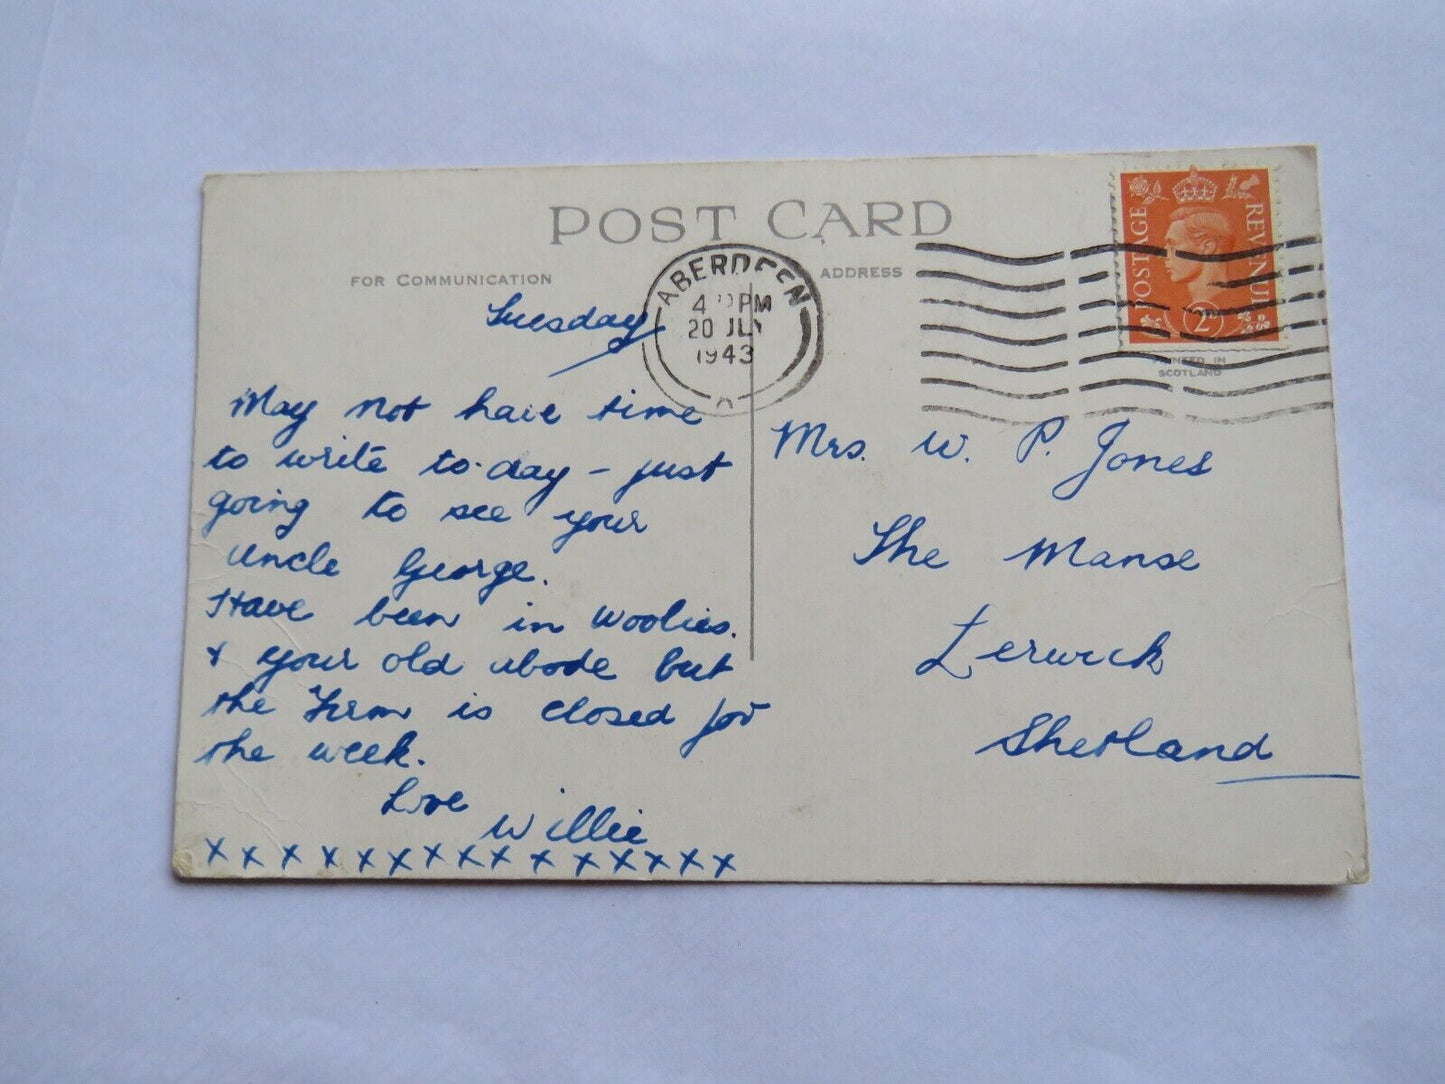 POST CARD
FOR COMMUNICATION
ADDRESS
ABERDEEN
PM
20 JLY
1943
POSTAGE
REVENUE
2D
PRINTED IN
SCOTLAND
Tuesday
May not have time
to write to-day – just
going to see your
Uncle George.
Have been in Woolies.
+ your old abode but
the Firm is closed for
the week.
Love
Willie
x x x x x x x x x x x x x x x
Mrs. W. P. Jones
The Manse
Lerwick
Shetland